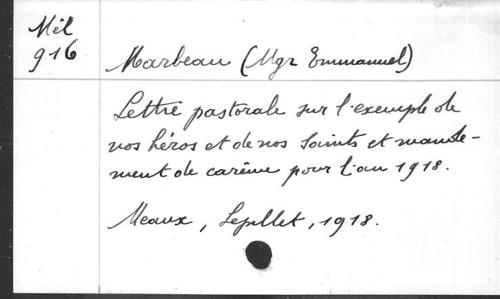 Mél
916
Marbeau (Mgr Emmanuel)
Lettre pastorale sur l'exemple de
nos héros et de nos Saints et mande-
ment de carême pour l'an 1918.
Meaux, Lepillet, 1918.